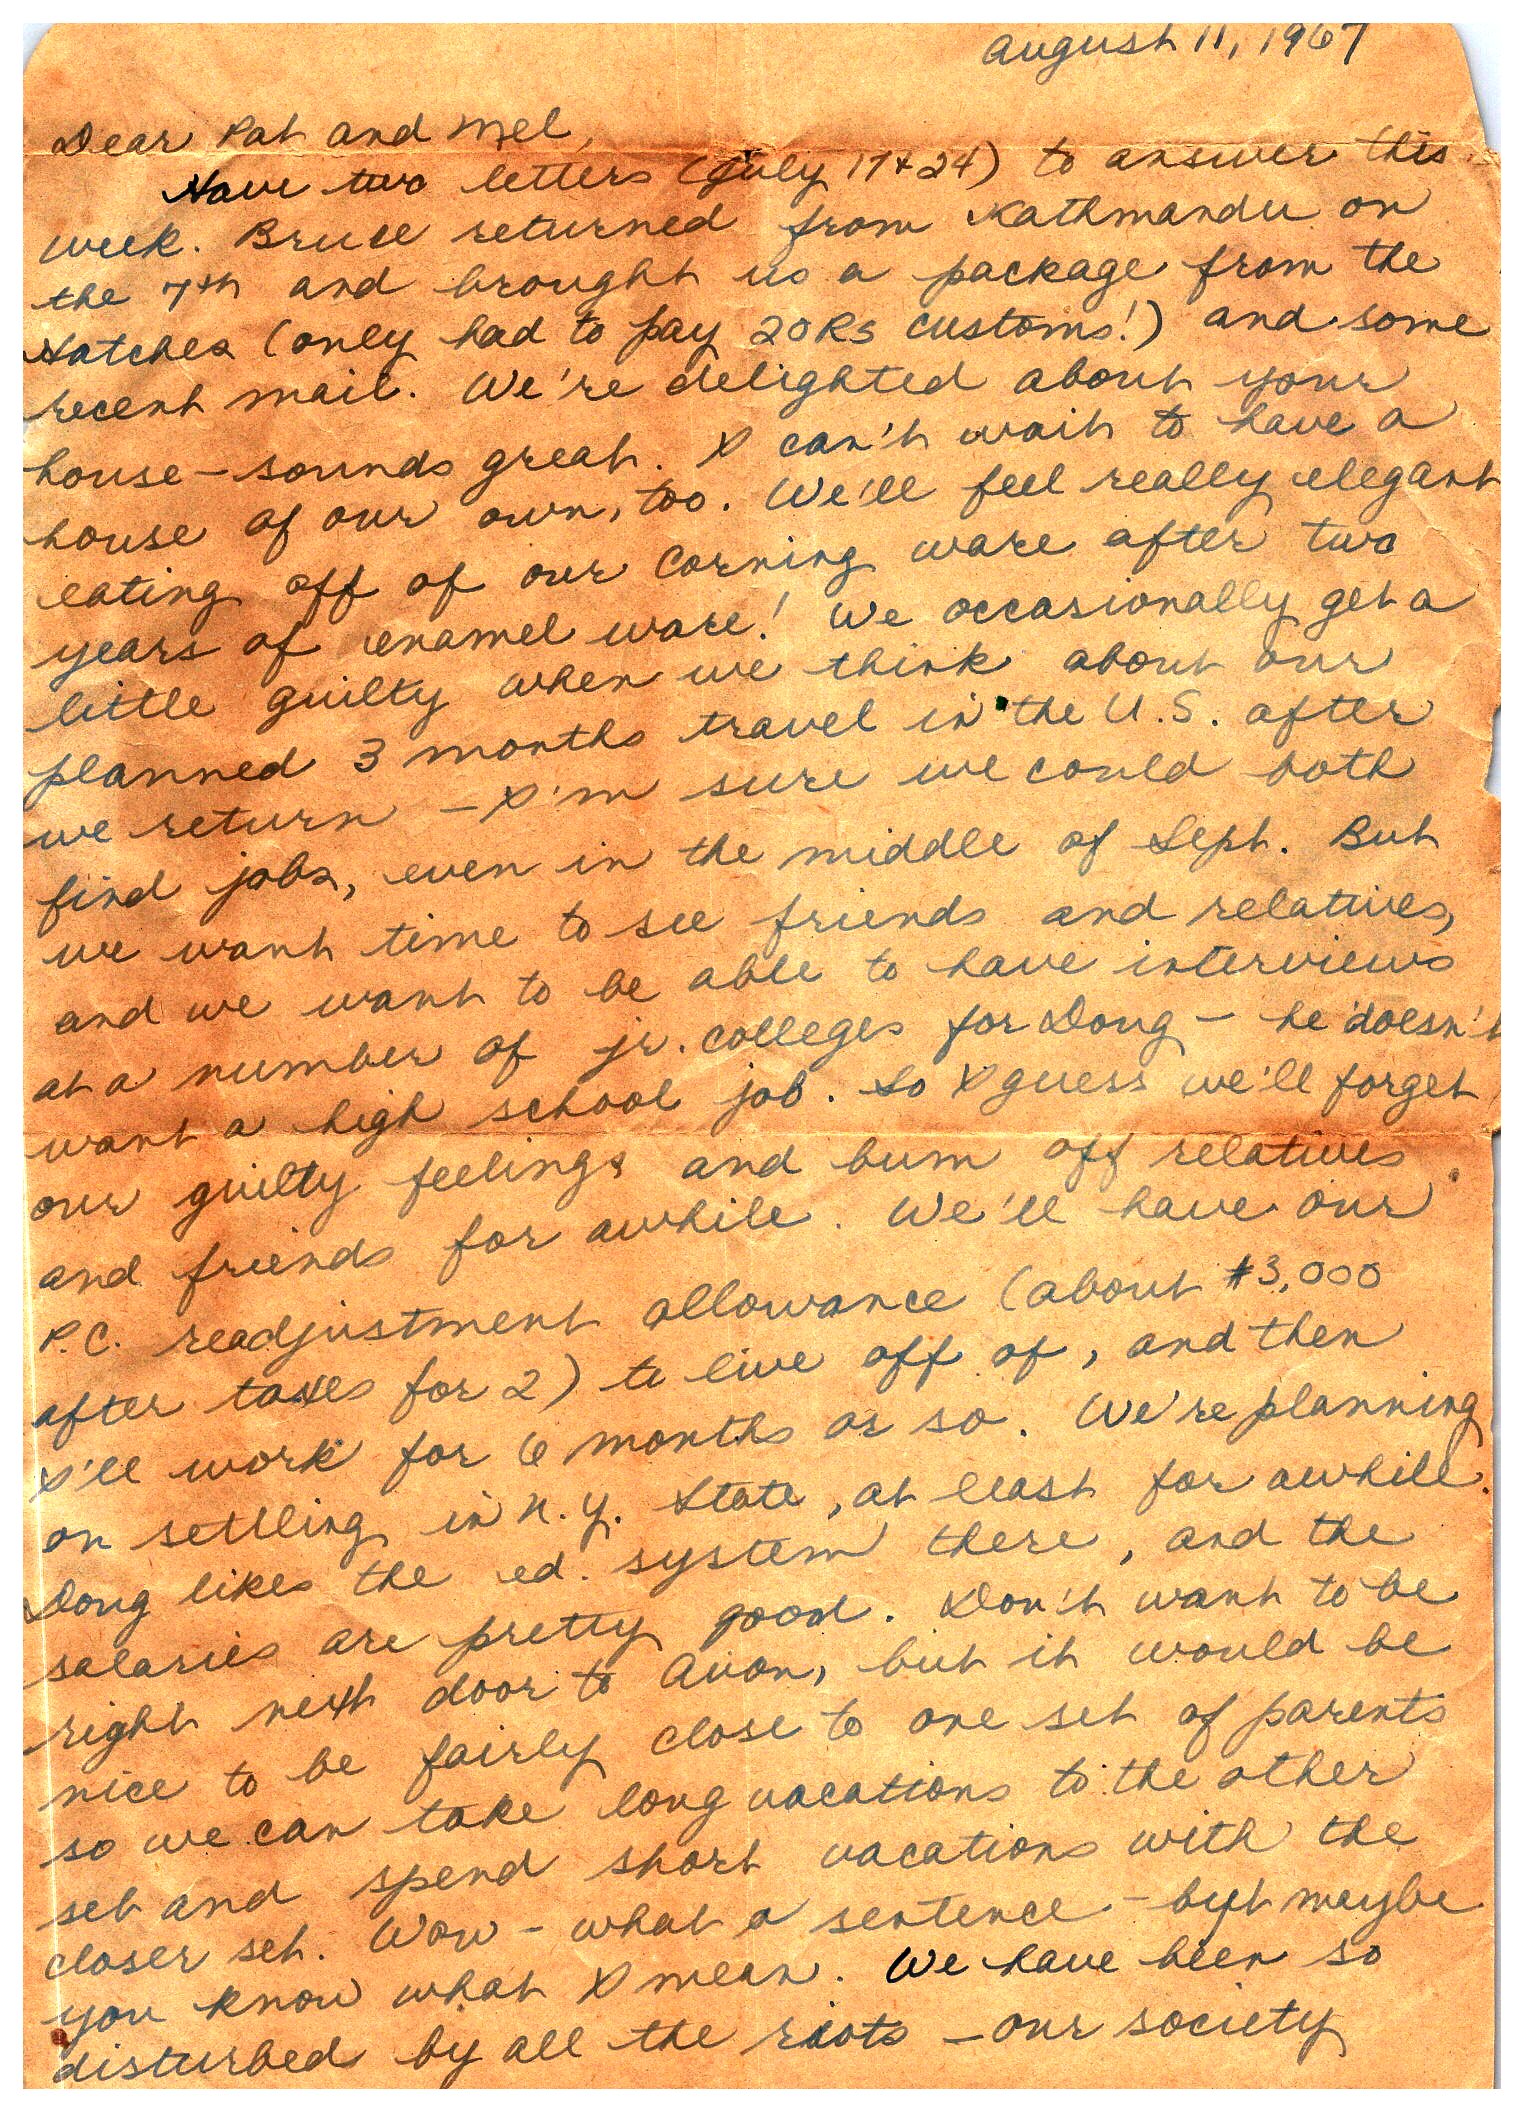 August 11, 1967
Dear Pat and Mel,
Have two letters (July 17 & 24) to answer this
week. Bruce returned from Kathmandu on
the 7th and brought us a package from the
Hatches (only had to pay 20 Rs customs!) and some
recent mail. We're delighted about your
house - sounds great. I can't wait to have a
house of our own, too. We'll feel really elegant
eating off of our Corning ware after two
years of enamel ware! We occasionally get a
little guilty when we think about our
planned 3 months travel in the U.S. after
we return - I'm sure we could both
find jobs, even in the middle of Sept. But
we want time to see friends and relatives,
and we want to be able to have interviews
at a number of jr. colleges for Doug - he doesn't
want a high school job. So I guess we'll forget
our guilty feelings and bum off relatives
and friends for awhile. We'll have our
P.C. readjustment allowance (about $3,000
after taxes for 2) to live off of, and then
I'll work for 6 months or so. We're planning
on settling in N.Y. State, at least for awhile.
Doug likes the ed. system there, and the
salaries are pretty good. Don't want to be
right next door to Avon, but it would be
nice to be fairly close to one set of parents
so we can take long vacations to the other
set and spend short vacations with the
closer set. Wow - what a sentence - but maybe
you know what I mean. We have been so
disturbed by all the riots - our society